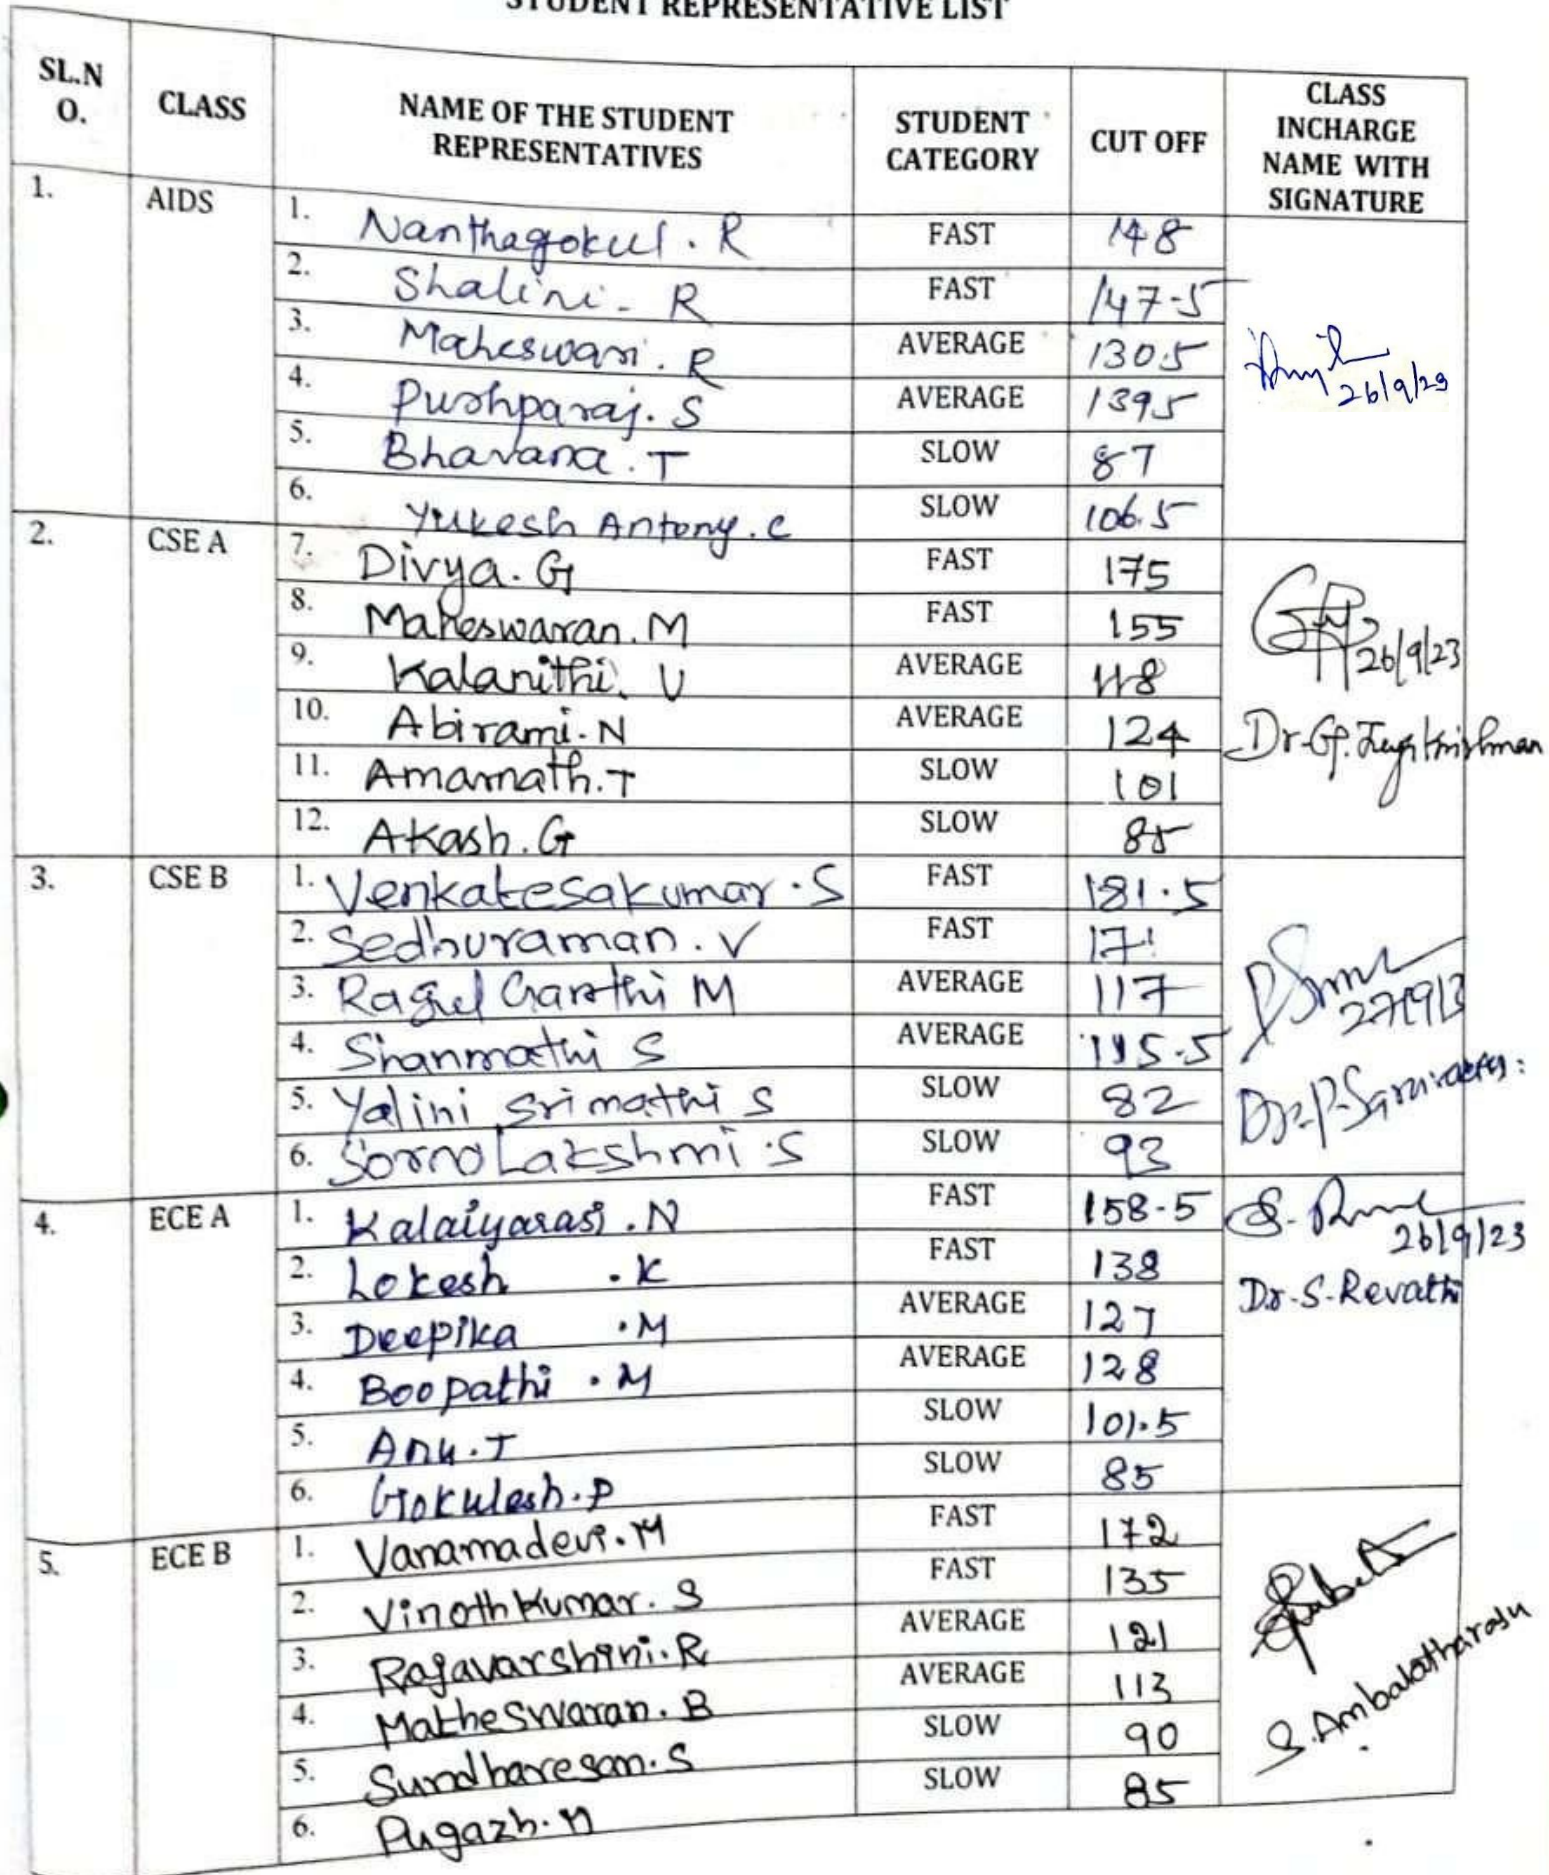 STUDENT REPRESENTATIVE LIST
SL.N O. CLASS NAME OF THE STUDENT REPRESENTATIVES STUDENT CATEGORY CUT OFF CLASS INCHARGE NAME WITH SIGNATURE
1. AIDS 1. Nanthagokul . R FAST 148
2. Shalini - R FAST 147-5
3. Maheswari . R AVERAGE 130.5
4. Pushparaj. S AVERAGE 139.5
5. Bhavana . T SLOW 87
6. Yukesh Antony . C SLOW 106.5
26/9/23
2. CSE A 7. Divya. G FAST 175
8. Maheswaran. M FAST 155
9. Kalanithi. V AVERAGE 118
10. Abirami. N AVERAGE 124
11. Amarnath. T SLOW 101
12. Akash. G SLOW 85
26/9/23
3. CSE B 1. Venkatesakumar . S FAST 181.5
2. Sedhuraman . V FAST 171
3. Ragul Ganthi M AVERAGE 117
4. Shanmathi S AVERAGE 115.5
5. Yalini Srimathi S SLOW 82
6. Sorno Lakshmi . S SLOW 93
4. ECE A 1. Kalaiyarasi . N FAST 158-5
2. Lokesh . K FAST 138
3. Deepika . M AVERAGE 127
4. Boopathi . M AVERAGE 128
5. Anu. T SLOW 101.5
6. Gokulesh. P SLOW 85
26/9/23
Dr. S. Revathi
5. ECE B 1. Vanamadevi. M FAST 172
2. Vinoth Kumar. S FAST 135
3. Rajavarshini. R AVERAGE 121
4. Matheswaran. B AVERAGE 113
5. Sundharesan. S SLOW 90
6. Pugazh. M SLOW 85
S. Ambalatharasu